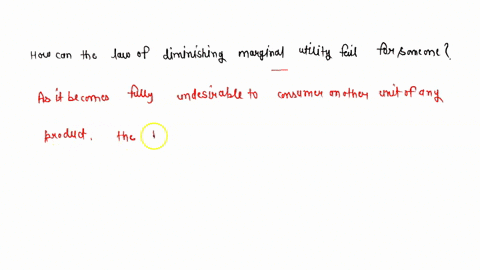 How can the law of diminishing marginal utility fail for someone?
As it becomes fully undesirable to consumer another unit of any
product. the